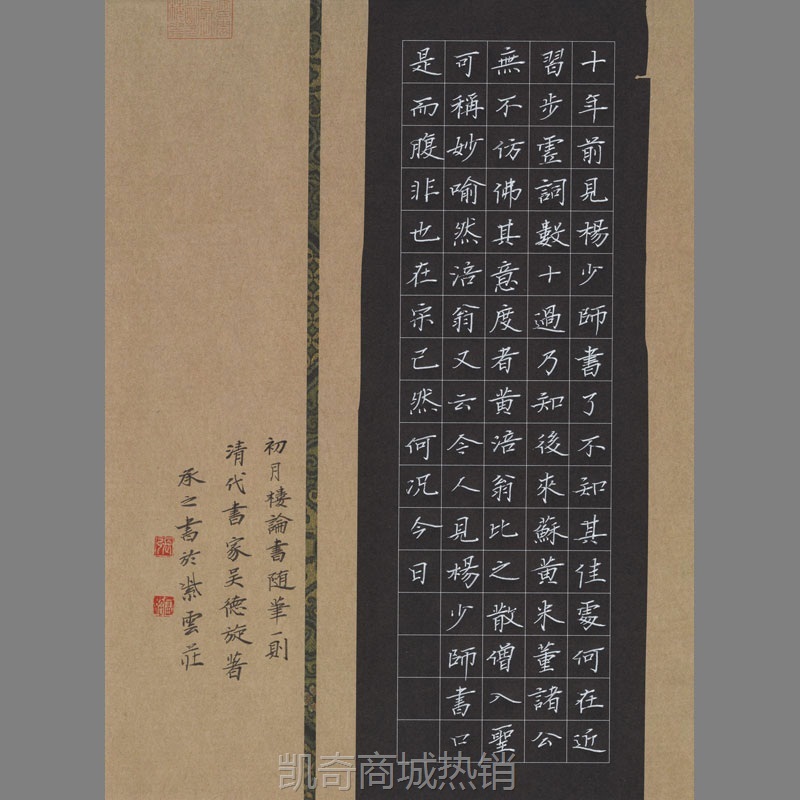 十年前見楊少師書了不知其佳處何在近
習步虛詞數十過乃知後來蘇黄米董諸公
無不仿佛其意度者黄涪翁比之散僧入聖
可稱妙喻然涪翁又云令人見楊少師書口
是而腹非也在宋已然何况今日
初月樓論書隨筆一則
清代書家吴德旋著
承之書於紫雲莊
凯奇商城热销